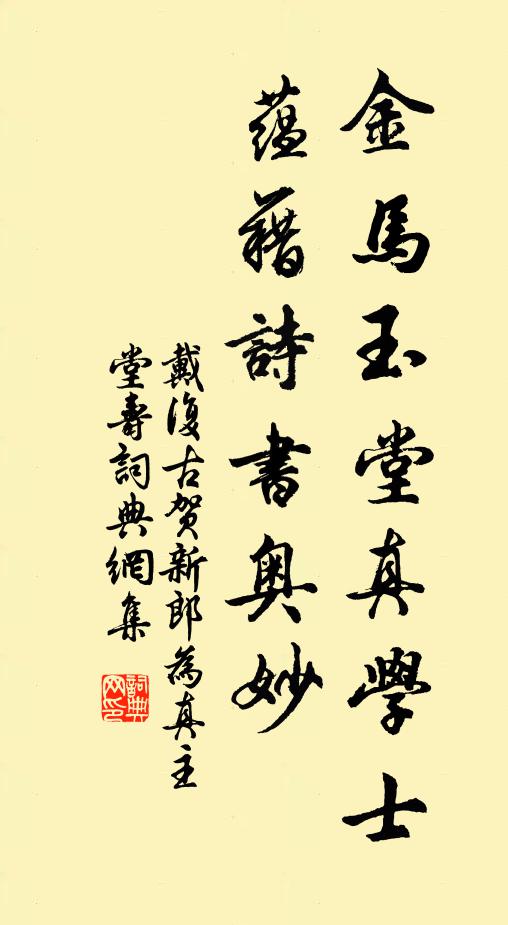 金馬玉堂真學士
蘊藉詩書奥妙
戴復古贺新郎為真主
堂壽詞典網集
詞典网印